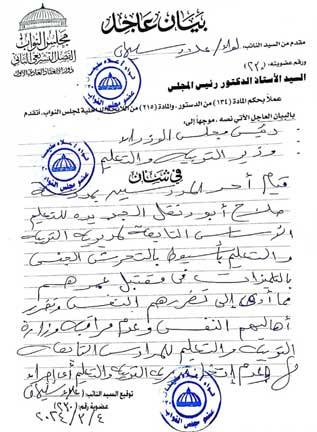 بيان عاجل
مجلس النواب
الفصل التشريعي الثاني
دور الانعقاد العادي الرابع
مقدم من السيد النائب: لواء/ علاء سليمان
ورقم عضويته: (٢٢٠)
السيد الأستاذ الدكتور رئيس المجلس
عملاً بحكم المادة (١٣٤) من الدستور، والمادة (٢١٥) من اللائحة الداخلية لمجلس النواب، أتقدم
بالبيان العاجل الآتي نصه، موجهاً إلى:
- رئيس مجلس الوزراء
- وزير التربية والتعليم
في شأن
قيام أحد المدرسين بمدرسة
صلاح أبو دنقل الجديدة للتعليم
الأساسى التابعة لمديرية التربية
والتعليم بأسيوط بالتحرش الجنسى
بالتلميذات فى مقتبل عمرهم
مما أدى إلى تضررهم النفسى وتضرر
أهاليهم النفسى وعدم مراقبة وزارة
التربية والتعليم للمدارس التابعة
وعدم اتخاذ مديرية التربية والتعليم أى إجراء
توقيع السيد النائب: علاء سليمان
عضوية رقم: (٢٢٠)
٢٠٢٤/٣/٤